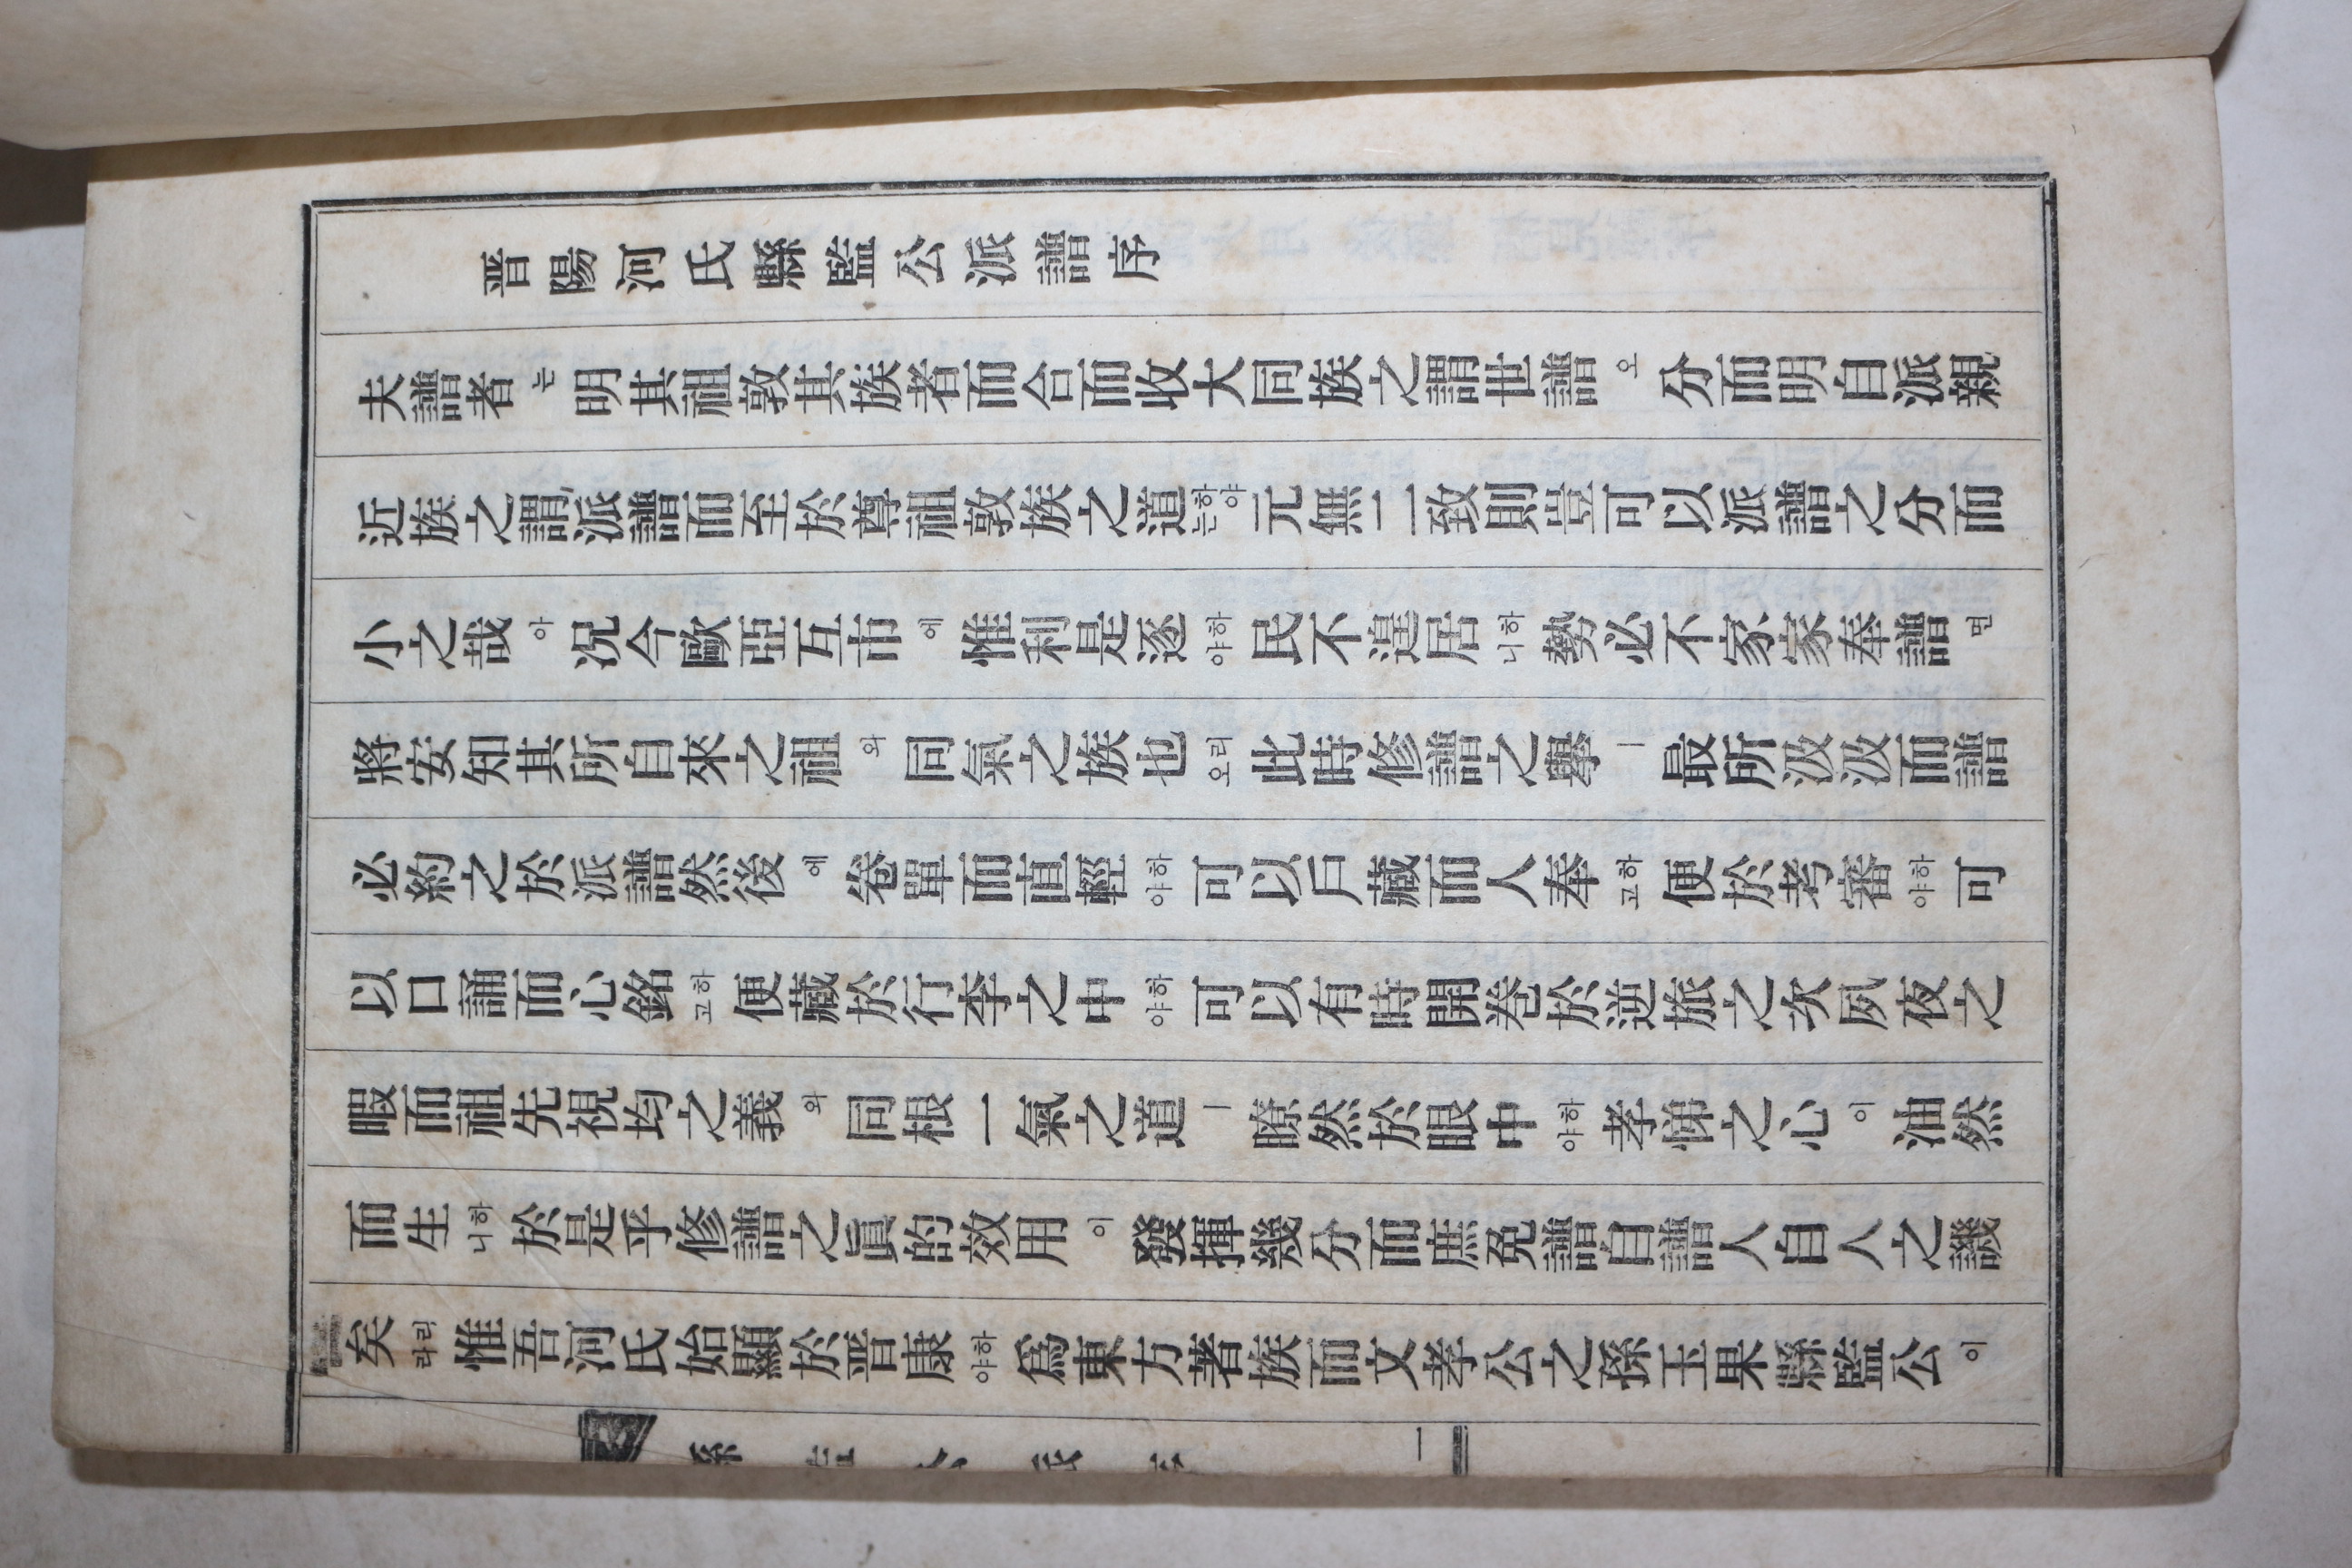 晋陽河氏縣監公派譜序
夫譜者는明其祖敦其族者而合而收大同族之謂世譜오分而明自派親
近族之謂派譜而至於尊祖敦族之道하야는元無二致則豈可以派譜之分而
小之哉아況今歐亞互市에惟利是逐하야民不遑居하니勢必不家家奉譜면
將安知其所自來之祖와同氣之族也오리此時修譜之擧ㅣ最所汲汲而譜
必約之於派譜然後에卷單而直輕하야可以戶藏而人奉하고便於考審하야可
以口誦而心銘하고便藏於行李之中하야可以有時開卷於逆旅之次夙夜之
暇而祖先視均之義와同根一氣之道ㅣ瞭然於眼中하야孝悌之心이油然
而生하니於是乎修譜之眞的效用이發揮幾分而庶免譜自譜人自人之譏
矣릭라惟吾河氏始顯於晋康하야爲東方著族而文孝公之孫玉果縣監公이
一